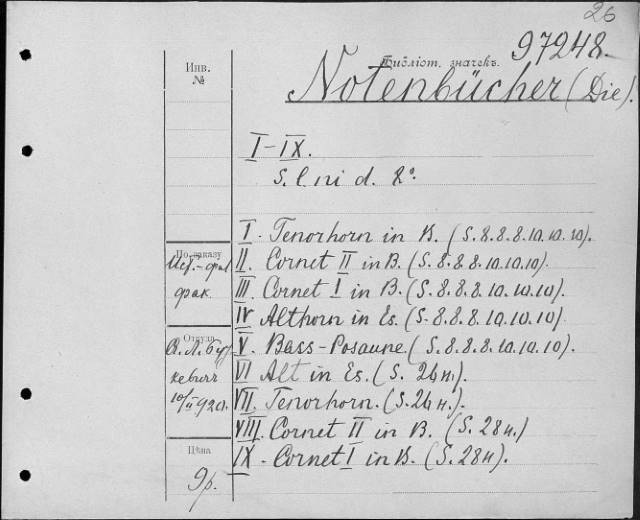 26
97248.
Инв.
№
Библіот. значекъ.
Notenbücher (Die).
I-IX.
S. l. ni d. 8º.
I. Tenorhorn in B. (S. 8. 8. 8. 10. 10. 10).
По заказу
Ист.-фил
фак.
II. Cornet II in B. (S. 8. 8. 8. 10. 10. 10).
III. Cornet I in B. (S. 8. 8. 8. 10. 10. 10).
IV Althorn in Es. (S. 8. 8. 8. 10. 10. 10).
Откуда
V. Bass-Posaune. (S. 8. 8. 8. 10. 10. 10).
VI Alt in Es. (S. 26 н.)
кевич
10/II 920.
VII. Tenorhorn. (S. 26 н.).
VIII. Cornet II in B. (S. 28 н.)
Цѣна
9 р.
IX - Cornet I in B. (S. 28 н).